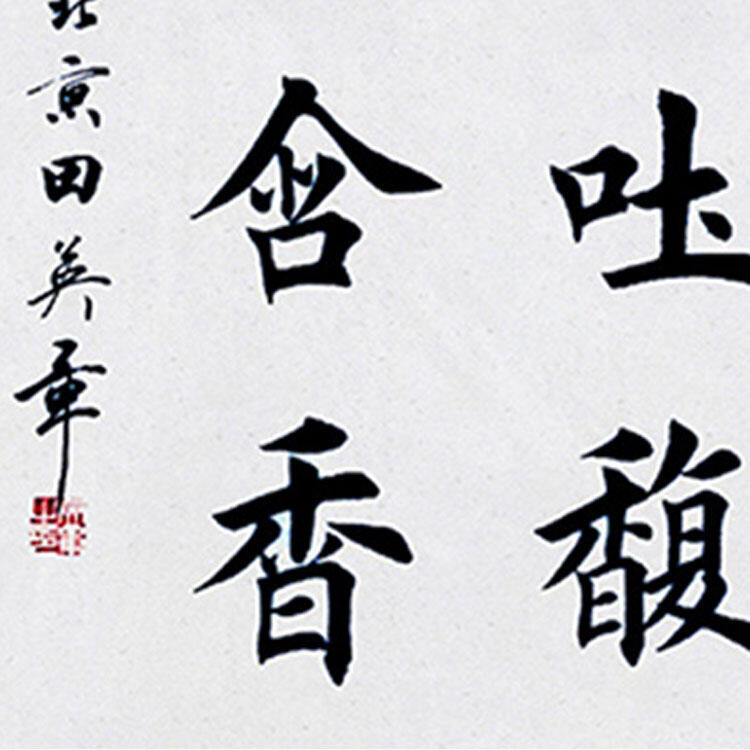 吐馥
含香
北京田英章